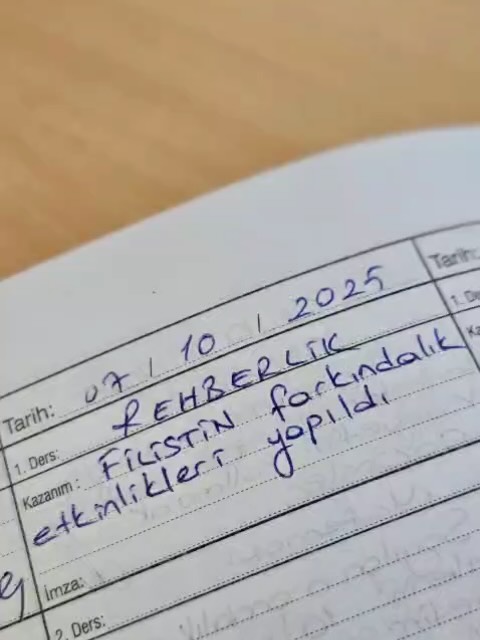 Tarih: 07 / 10 / 2025
1. Ders: REHBERLİK
Kazanım: FİLİSTİN farkındalık
etkinlikleri yapıldı
İmza:
2. Ders:
Tarih:
1. De
Ka